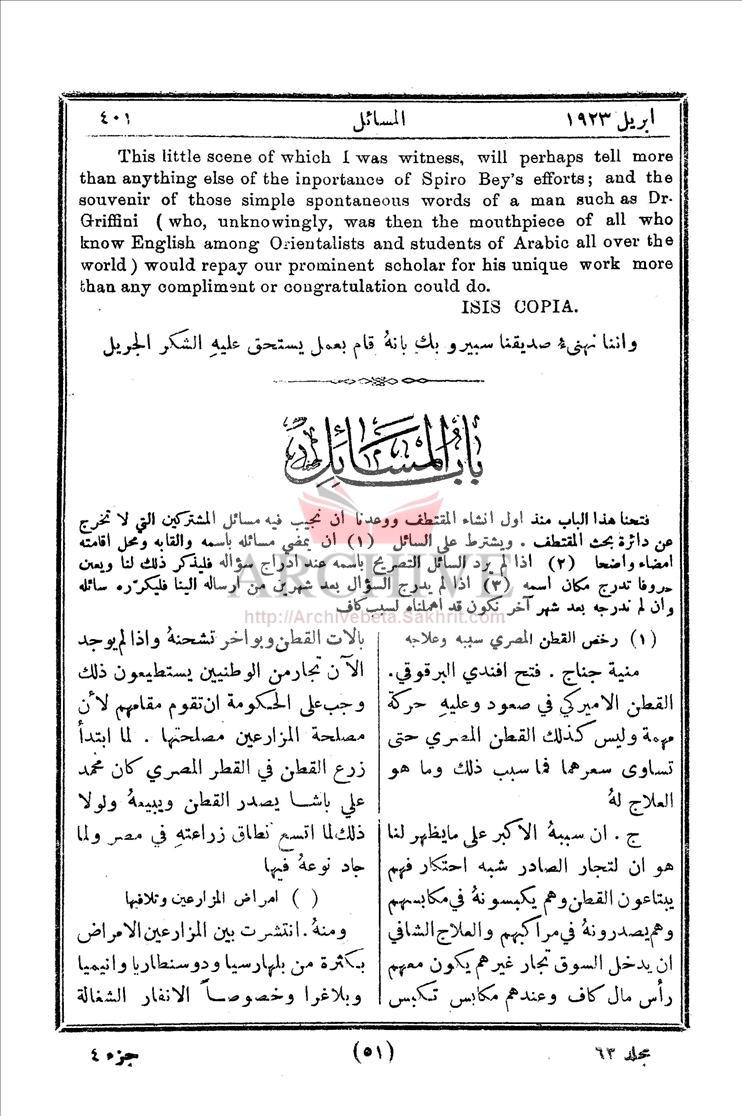 ابريل ١٩٢٣ المسائل ٤٠١
This little scene of which I was witness, will perhaps tell more
than anything else of the inportance of Spiro Bey's efforts; and the
souvenir of those simple spontaneous words of a man such as Dr.
Griffini ( who, unknowingly, was then the mouthpiece of all who
know English among Orientalists and students of Arabic all over the
world ) would repay our prominent scholar for his unique work more
than any compliment or congratulation could do.
ISIS COPIA.
واننا نهنىء صديقنا سبيرو بك بانهُ قام بعمل يستحق عليهِ الشكر الجزيل
باب المسائل
فتحنا هذا الباب منذ اول انشاء المقتطف ووعدنا ان نجيب فيه مسائل المشتركين التي لا تخرج
عن دائرة بحث المقتطف . ويشترط على السائل (١) ان يمضي مسائله باسمه والقابه ومحل اقامته
امضاء واضحا (٢) اذا لم يرد السائل التصريح باسمه عند ادراج سؤاله فليذكر ذلك لنا ويعين
حروفا تدرج مكان اسمه (٣) اذا لم يدرج السؤال بعد شهرين من ارساله الينا فليكرّره سائله
وان لم ندرجه بعد شهر آخر نكون قد اهملناه لسبب كاف
ARCHIVE
http://Archivebeta.Sakhrit.com
(١) رخص القطن المصري سببه وعلاجه
منية جناج . فتح افندي البرقوقي.
القطن الاميركي في صعود وعليهِ حركة
مهمة وليس كذلك القطن المصري حتى
تساوى سعرهما فما سبب ذلك وما هو
العلاج لهُ
ج . ان سببهُ الاكبر على ما يظهر لنا
هو ان لتجار الصادر شبه احتكار فهم
يبتاعون القطن وهم يكبسونهُ في مكابسهم
وهم يصدرونهُ في مراكبهم والعلاج الشافي
ان يدخل السوق تجار غيرهم يكون معهم
رأس مال كاف وعندهم مكابس تكبس
بالات القطن وبواخر تشحنهُ واذا لم يوجد
الآن تجار من الوطنيين يستطيعون ذلك
وجب على الحكومة ان تقوم مقامهم لأن
مصلحة المزارعين مصلحتها . لما ابتدأ
زرع القطن في القطر المصري كان محمد
علي باشا يصدر القطن ويبيعهُ ولولا
ذلك لما اتسع نطاق زراعتهِ في مصر ولما
جاد نوعهُ فيها
( ) امراض المزارعين وتلافيها
ومنهُ. انتشرت بين المزارعين الامراض
بكثرة من بلهارسيا ودوسنطاريا وانيميا
وبلاغرا وخصوصاً الانفار الشغالة
مجلد ٦٣ (٥١) جزء ٤